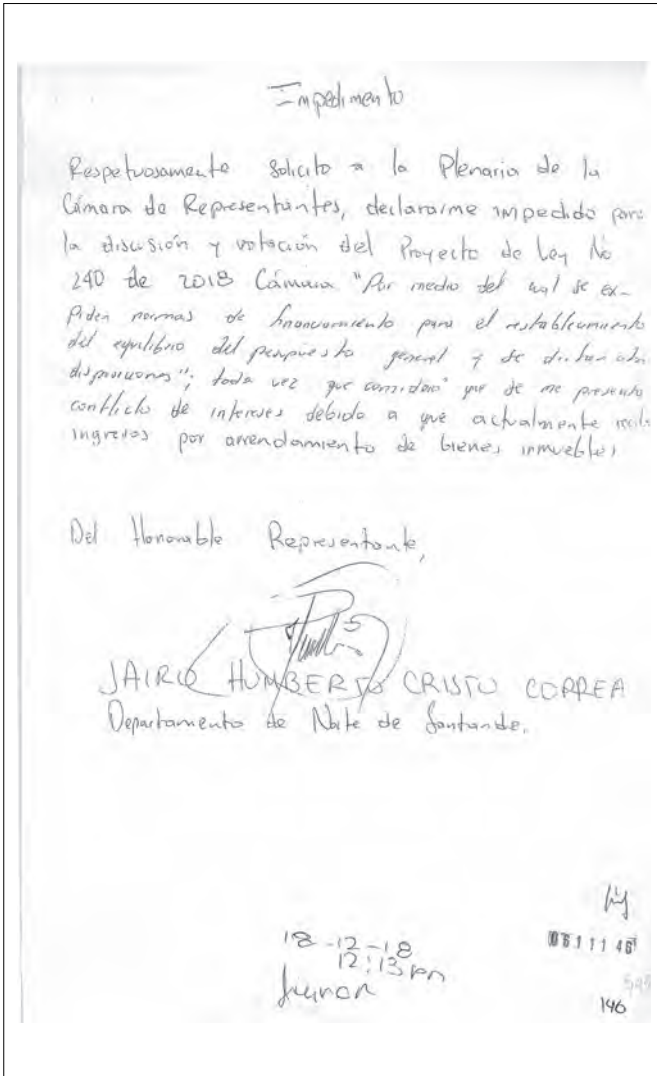 Impedimento
Respetuosamente solicito a la Plenaria de la
Cámara de Representantes, declararme impedido para
la discusión y votación del Proyecto de Ley No
240 de 2018 Cámara "Por medio del cual se ex-
piden normas de financiamiento para el restablecimiento
del equilibrio del presupuesto general y se dictan otras
disposiciones"; toda vez que considero que se me presenta
conflicto de intereses debido a que actualmente recibo
ingresos por arrendamiento de bienes inmuebles
Del Honorable Representante,
JAIRO HUMBERTO CRISTO CORREA
Departamento de Norte de Santander.
18-12-18
12:13 pm
146